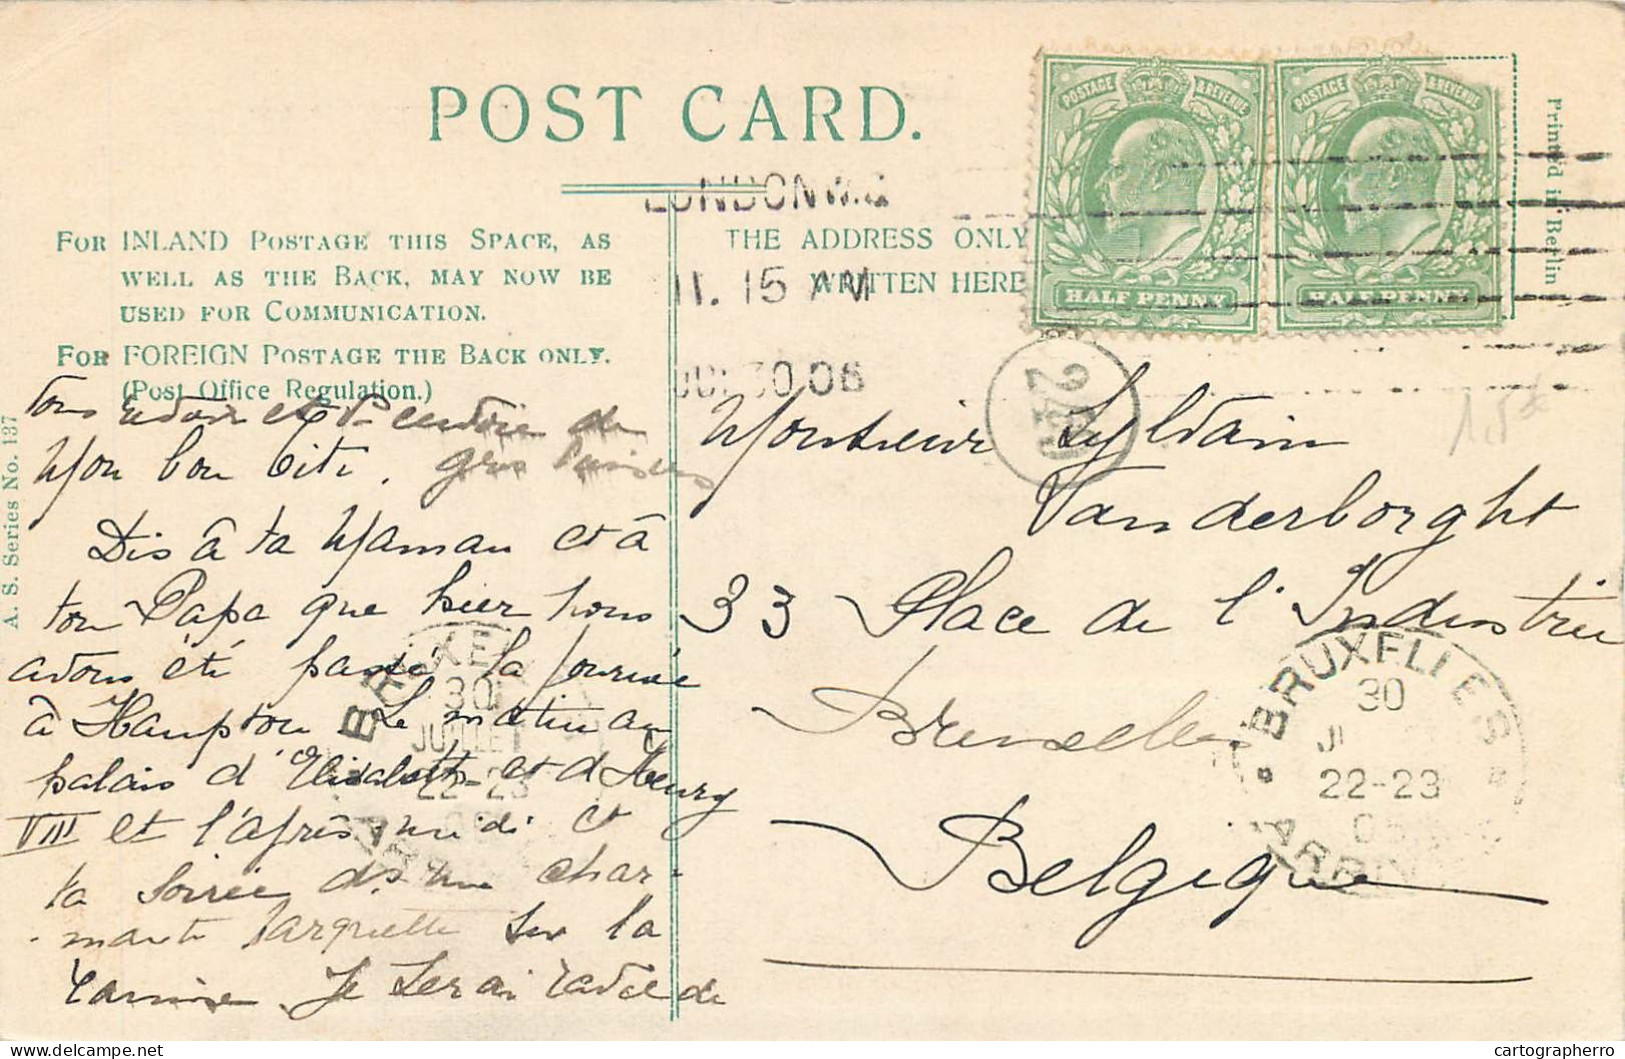 POST CARD.
LONDON W.C
11. 15 AM
JUL 30 06
FOR INLAND POSTAGE THIS SPACE, AS
WELL AS THE BACK, MAY NOW BE
USED FOR COMMUNICATION.
FOR FOREIGN POSTAGE THE BACK ONLY.
(Post Office Regulation.)
THE ADDRESS ONLY
WRITTEN HERE
POSTAGE & REVENUE
HALF PENNY
POSTAGE & REVENUE
HALF PENNY
Printed in Berlin
A. S. Series No. 137
vous revoir et de
Mon bon Titi. gros
Dis à ta Maman et à
ton Papa que hier nous
avons été passé la journée
à Hampton Le matin au
palais d'Elisabeth et d Henry
VIII et l'après midi et
la soirée ds une char-
mante barquette sur la
Tamise. Je serai ravie de
Monsieur Sylvain
Vanderborght
33 Place de l'Industrie
Bruxelles
Belgique
BRUXELLES
30
JUILLET
22-23
ARRIV
BRUXELLES
30
22-23
ARRIV
cartographerro